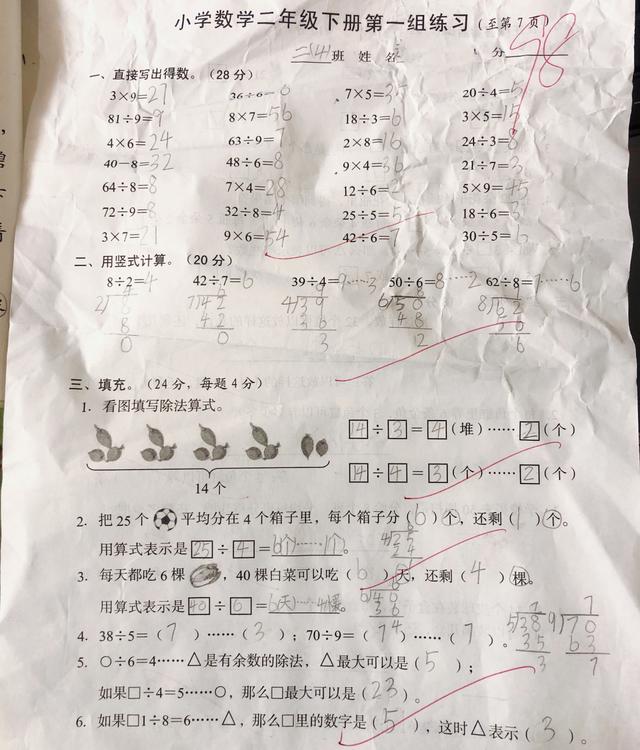 小学数学二年级下册第一组练习(至第7页)
二(4)班 姓名 分 98
一、直接写出得数。(28分)
3×9=27 36÷6=6 7×5=35 20÷4=5
81÷9=9 8×7=56 18÷3=6 3×5=15
4×6=24 63÷9=7 2×8=16 24÷3=8
40-8=32 48÷6=8 9×4=36 21÷7=3
64÷8=8 7×4=28 12÷6=2 5×9=45
72÷9=8 32÷8=4 25÷5=5 18÷6=3
3×7=21 9×6=54 42÷6=7 30÷5=6
二、用竖式计算。(20分)
8÷2=4 42÷7=6 39÷4=9……3 50÷6=8……2 62÷8=7……6
2 8 7 42 4 39 6 50 8 62
8 42 36 48 56
0 0 3 2 6
三、填充。(24分,每题4分)
1. 看图填写除法算式。
14÷3=4(堆)……2(个)
14÷4=3(个)……2(个)
14个
2. 把25个平均分在4个箱子里,每个箱子分(6)个,还剩(1)个。
用算式表示是25÷4=6(个)……1(个)。
3. 每天都吃6棵,40棵白菜可以吃(6)天,还剩(4)棵。
用算式表示是40÷6=6(天)……4(棵)。
4. 38÷5=(7)……(3);70÷9=(7)……(7)。
5. ○÷6=4……△是有余数的除法,△最大可以是(5);
如果□÷4=5……○,那么□最大可以是(23)。
6. 如果□1÷8=6……△,那么□里的数字是(5),这时△表示(3)。